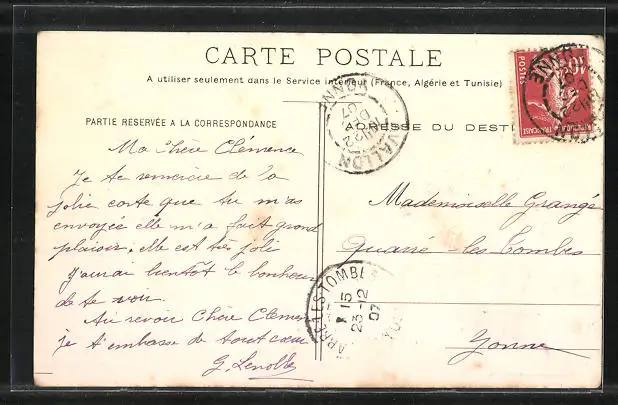 CARTE POSTALE
A utiliser seulement dans le Service intérieur (France, Algérie et Tunisie)
PARTIE RESERVÉE A LA CORRESPONDANCE
ADRESSE DU DESTI
Ma Chère Clémence
Je te remercie de la
jolie carte que tu m'as
envoyée elle m'a fait grand
plaisir, elle est très joli
j'aurai bientôt le bonheur
de te voir.
Au revoir Chère Clemen
je t'embasse de tout cœur
G. Lenoble
Mademoiselle Grangé
Quarré-les-Tombes
Yonne
AVALLON
YONNE
DEC
07
LES TOMBES
15
23-12
07
10
POSTES
FRANÇAISE